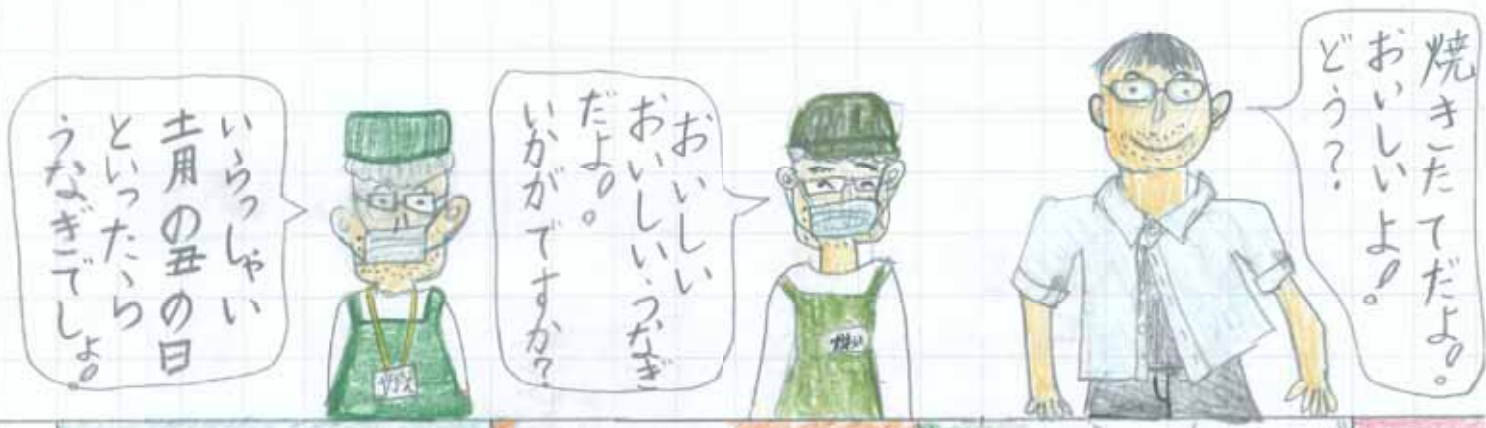 焼きたてだよ。
おいしいよ。
どう?
おいしい
おいしいうなぎ
だよ。
いかがですか?
いらっしゃい
土用の丑の日
といったら
うなぎでしょ。